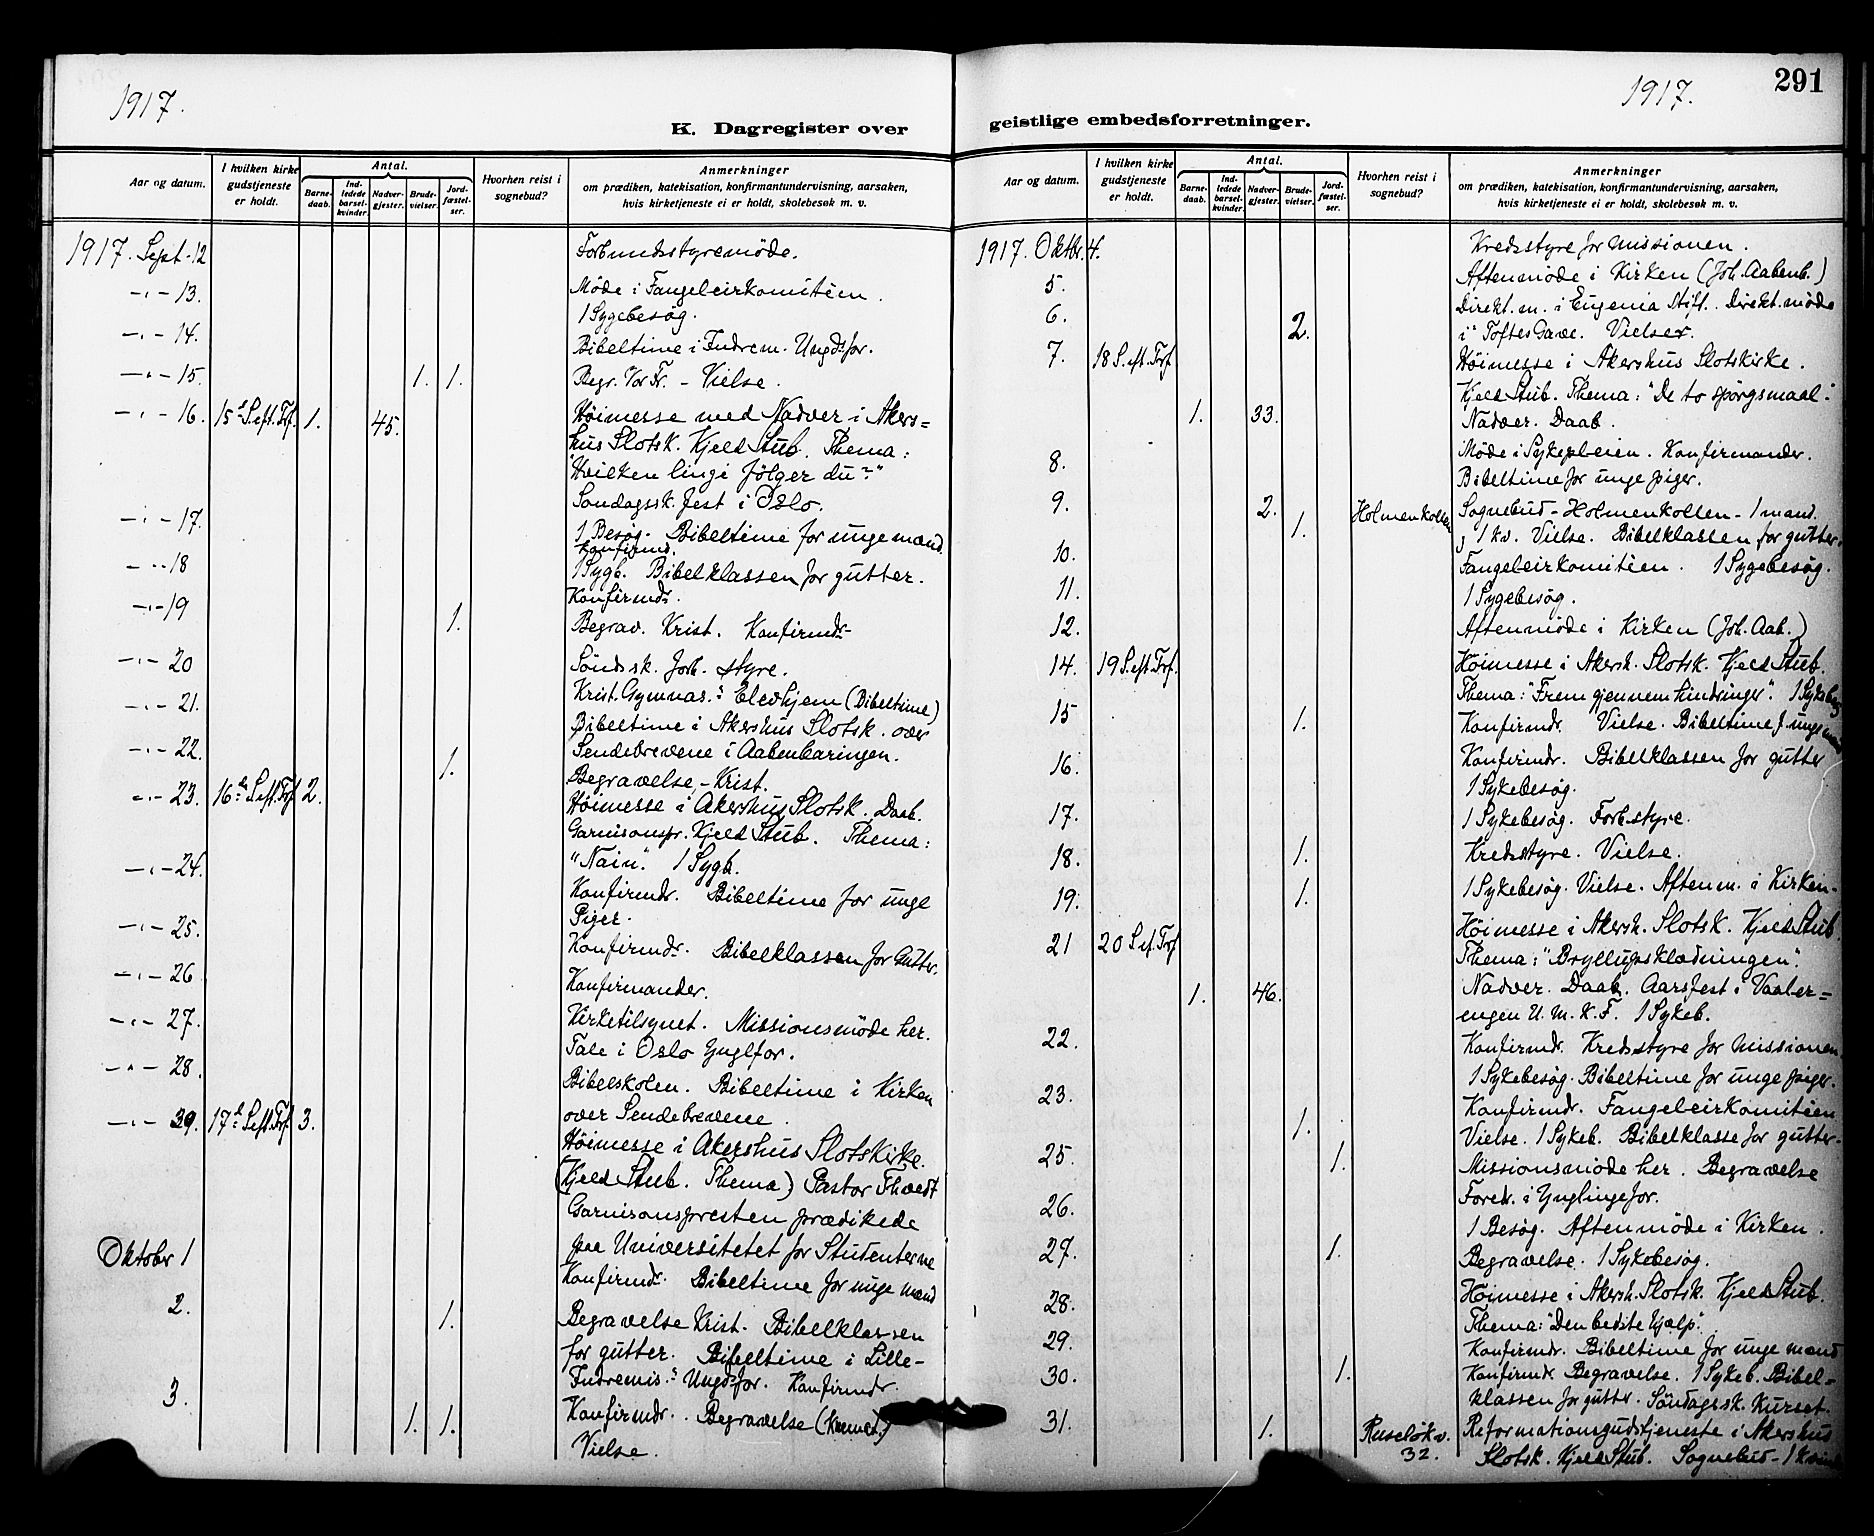 1917.
K. Dagregister over
Aar og datum.
I hvilken kirke
gudstjeneste
er holdt.
Antal.
Barne-
daab.
Ind-
ledede
barsel-
kvinder.
Nadver-
gjester.
Brude-
vielser.
Jord-
fæstel-
ser.
Hvorhen reist i
sognebud?
Anmerkninger
om prædiken, katekisation, konfirmantundervisning, aarsaken,
hvis kirketjeneste ei er holdt, skolebesøk m. v.
1917. Sept. 12 Forbundsstyremöde.
-"- 13. Möde i Fangeleirkomitéen.
1 Sygebesög.
-"- 14. Bibeltime i Indrem. Ungdsfor.
-"- 15. 1. 1. Begr. Vor Fr. - Vielse.
-"- 16. 15de S. eft. Trf. 1. 45. Höimesse med Nadver i Akers=
hus Slotsk. Kjeld Stub. Thema:
"Hvilken linje följer du?"
Söndagssk. fest i Oslo.
-"- 17. 1 Besög. Bibeltime for unge mænd.
Konfirmd.
-"- 18 1 Sygb. Bibelklassen for gutter.
Konfirmdr.
-"- 19 1. Begrav. Krist. Konfirmdr.
-"- 20 Söndsk. forb. styre.
Krist. Gymnas. Elevhjem (Bibeltime)
-"- 21. Bibeltime i Akershus Slotsk. over
Sendebrevene i Aabenbaringen.
-"- 22. 1. Begravelse - Krist.
-"- 23. 16de S. eft. Trf 2. Höimesse i Akershus Slotsk. Daab.
Garnisonspr. Kjeld Stub. Thema:
"Nain". 1 Sygb.
-"- 24. Konfirmdr. Bibeltime for unge
Piger.
-"- 25. Konfirmdr. Bibelklassen for Gutter.
-"- 26 Konfirmander.
-"- 27. Kirketilsynet. Missionsmöde her.
Tale i Oslo Ynglfor.
-"- 28. Bibelskolen. Bibeltime i Kirken
over Sendebrevene.
-"- 29. 17de S. eft. Trf. 3. Höimesse i Akershus Slotskirke.
(Kjeld Stub. Thema) Pastor Thvedt
Garnisonspresten prædikede
paa Universitetet for Studenterne
Oktober 1 Konfirmdr. Bibeltime for unge mænd
2. 1. Begravelse Krist. Bibelklassen
for gutter. Bibeltime i Lille-
Indremis. Ungdsfor. Konfirmdr.
3. 1. 1. Konfirmdr. Begravelse (Kremat.)
Vielse.
1917.
291
geistlige embedsforretninger.
Aar og datum.
I hvilken kirke
gudstjeneste
er holdt.
Antal.
Barne-
daab.
Ind-
ledede
barsel-
kvinder.
Nadver-
gjester.
Brude-
vielser.
Jord-
fæstel-
ser.
Hvorhen reist i
sognebud?
Anmerkninger
om prædiken, katekisation, konfirmantundervisning, aarsaken,
hvis kirketjeneste ei er holdt, skolebesøk m. v.
1917. Oktbr. 4. Kredsstyre for Missionen.
5. Aftenmöde i Kirken (Joh. Aabenb.)
6. Direkt. m. i Eugenia Stift. Direkt. möde
2. i "Toftes Gave. Vielser.
7. 18 S. eft. Trf. Höimesse i Akershus Slotskirke.
Kjeld Stub. Thema: "De to spörgsmaal".
1. 33. Nadver. Daab.
8. Möde i Sykepleien. Konfirmander.
Bibeltime for unge piger.
9. 2. Holmenkollen Sognebud - Holmenkollen - 1 mand.
1. og 1 kv. Vielse. Bibelklassen for gutter.
10. Fangeleirkomitéen. 1 Sygebesög.
11. 1 Sygebesög.
12. Aftenmöde i Kirken (Joh. Aab.)
14. 19 S. eft. Trf. Höimesse i Akersh. Slotsk. Kjeld Stub.
Thema: "Frem gjennem hindringer". 1 Sykebes.
15 1. Konfirmdr. Vielse. Bibeltime f. unge mænd
16. Konfirmdr. Bibelklassen for gutter
1 Sykebesög.
17. 1 Sykebesög. Forb. styre.
18. 1. Kredsstyre. Vielse.
19. 1. 1 Sykebesög. Vielse. Aftenm. i Kirken-
21 20 S. ef. Trf Höimesse i Akersh. Slotsk. Kjeld Stub.
Thema: "Bryllupsklædningen".
1. 46. Nadver. Daab. Aarsfest i Vaaler=
engen U. M. K. F. 1 Sykeb.
22. Konfirmdr. Kredsstyre for Missionen.
1 Sykebesög. Bibeltime for unge piger.
23. Konfirmdr. Fangeleirkomitéen
1. Vielse. 1 Sykeb. Bibelklasse for gutter.
25. 1. Missionsmöde her. Begravelse
Foredr. i Ynglingefor.
26. 1 Besög. Aftenmöde i Kirken.
27. 1. Begravelse. 1 Sykebesög.
28. Höimesse i Akersh. Slotsk. Kjeld Stub.
Thema: "Den bedste hjælp".
29. Konfirmdr. Bibeltime for unge mænd
30. 1. Konfirmdr. Begravelse. 1 Sykeb. Bibel=
klassen for gutter. Söndagssk. Kurset.
31. 1. Ruselökv. Reformationsgudstjeneste i Akershus
32. Slotsk. Kjeld Stub. Sognebud - 1 kvinde